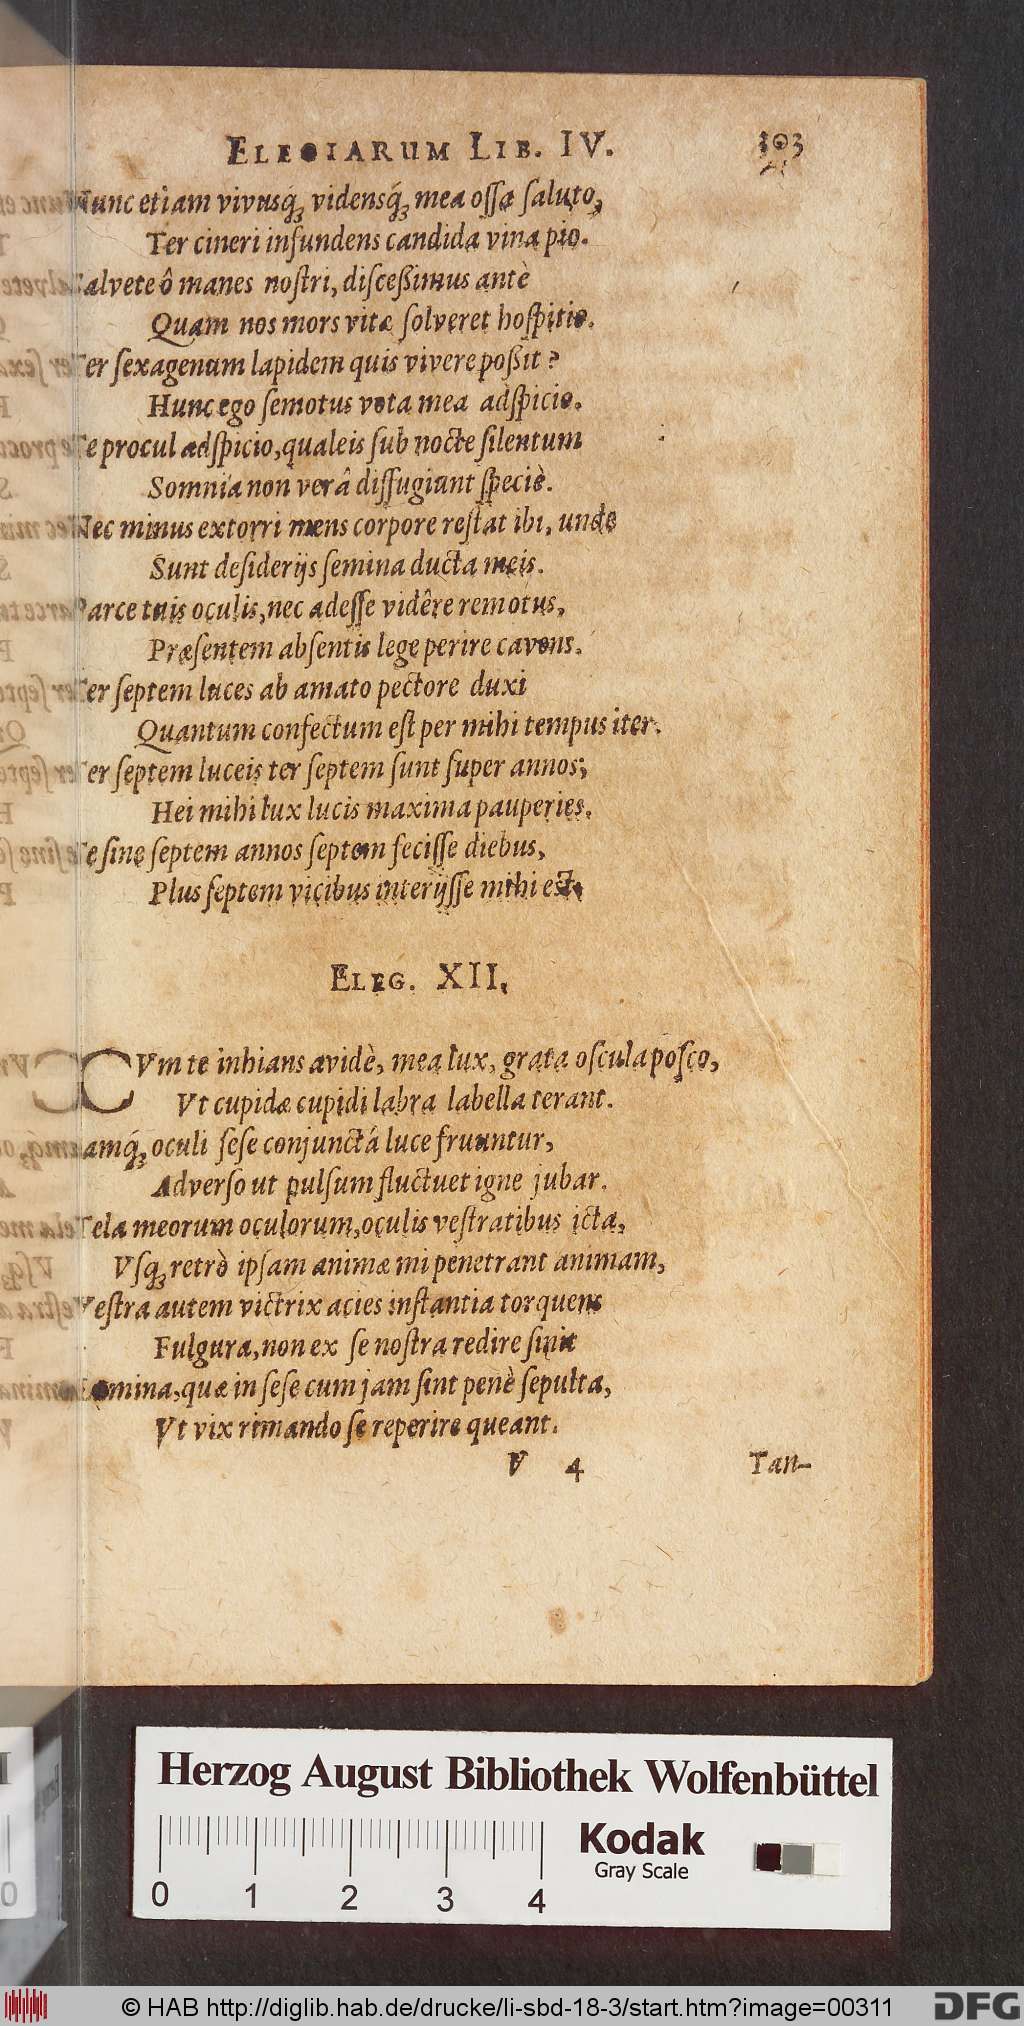 ELEGIARUM LIB. IV. 303
Nunc etiam vivusq́ꝫ vidensq́ꝫ mea ossa saluto,
Ter cineri infundens candida vina pio.
Salvete ô manes nostri, disceßimus antè
Quam nos mors vitæ solveret hospitio.
Ter sexagenum lapidem quis vivere poßit?
Hunc ego semotus vota mea adspicio.
Te procul adspicio, qualeis sub nocte silentum
Somnia non verâ diffugiunt speciè.
Nec minus extorri mens corpore restat ibi, unde
Sunt desiderijs semina ducta meis.
Parce tuis oculis, nec adesse vidêre remotus,
Præsentem absentis lege perire cavens.
Ter septem luces ab amato pectore duxi
Quantum confectum est per mihi tempus iter.
Ter septem luceis ter septem sunt super annos;
Hei mihi lux lucis maxima pauperies.
Te sine septem annos septem fecisse diebus,
Plus septem vicibus interijsse mihi est.
ELEG. XII.
CVm te inhians avidè, mea lux, grata oscula posco,
Vt cupidæ cupidi labra labella terant.
amq́ꝫ oculi sese conjunctá luce fruuntur,
Adverso ut pulsum fluctuet igne jubar.
Tela meorum oculorum, oculis vestratibus icta,
Vsqꝫ retrò ipsam animæ mi penetrant animam,
Vestra autem victrix acies instantia torquens
Fulgura, non ex se nostra redire sinit
Lumina, quæ in sese cum jam sint penè sepulta,
Vt vix rimando se reperire queant.
V 4 Tan-
Herzog August Bibliothek Wolfenbüttel
Kodak
Gray Scale
0 1 2 3 4
© HAB http://diglib.hab.de/drucke/li-sbd-18-3/start.htm?image=00311
DFG